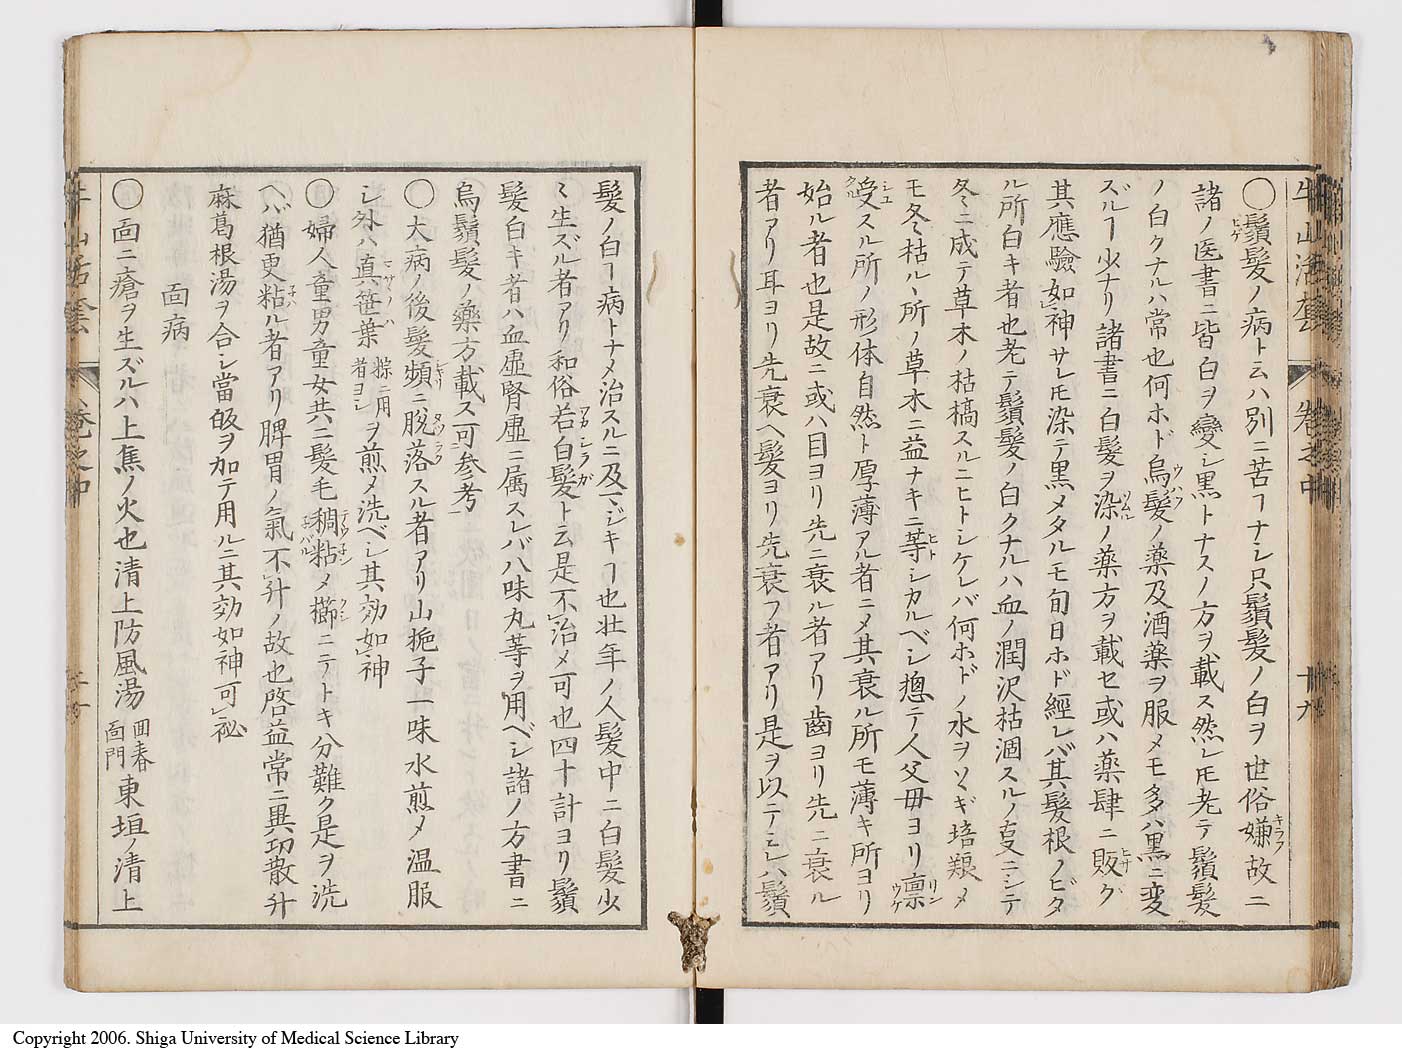 牛山活套 卷之中 十九
〇鬚髮ノ病ト云ハ別ニ苦ヿナシ只鬚髮ノ白ヲ世俗嫌故ニ
諸ノ医書ニ皆白ヲ變シ黒トナスノ方ヲ載ス然レ𪜈老テ鬚髮
ノ白クナルハ常也何ホド烏髮ノ薬及酒薬ヲ服メモ多ハ黒ニ変
ズルヿ少ナリ諸書ニ白髮ヲ染ノ薬方ヲ載セ或ハ薬肆ニ販グ
其應驗如神サレ𪜈染テ黒メタルモ旬日ホド經レバ其髮根ノビタ
ル所白キ者也老テ鬚髮ノ白クナルハ血ノ潤沢枯涸スルノ変ニシテ
冬ニ成テ草木ノ枯槁スルニヒトシケレバ何ホドノ水ヲソヽギ培糞メ
モ冬枯ルヽ所ノ草木ニ益ナキニ等シカルベシ摠テ人父母ヨリ禀
受スル所ノ形体自然ト厚薄アル者ニメ其衰ル所モ薄キ所ヨリ
始ル者也是故ニ或ハ目ヨリ先ニ衰ル者アリ齒ヨリ先ニ衰ル
者アリ耳ヨリ先衰ヘ髮ヨリ先衰フ者アリ是ヲ以テミレハ鬚
髮ノ白ヿ病トナメ治スルニ及マジキヿ也壮年ノ人髮中ニ白髮少
ミ生ズル者アリ和俗若白髮ト云是不治メ可也四十計ヨリ鬚
髮白キ者ハ血虚腎虚ニ属スレバ八味丸等ヲ用ベシ諸ノ方書ニ
烏鬚髮ノ藥方載ス可参考
〇大病ノ後髮頻ニ脱落スル者アリ山梔子一味水煎メ温服
シ外ハ真笹葉粽ニ用者ヨシヲ煎メ洗ベシ其効如神
〇婦人童男童女共ニ髮毛稠粘メ櫛ニテトキ分難ク是ヲ洗
ヘバ猶更粘ル者アリ脾胃ノ氣不升ノ故也啓益常ニ異功散升
麻葛根湯ヲ合シ當皈ヲ加テ用ルニ其効如神可祕
面病
〇面ニ瘡ヲ生ズルハ上焦ノ火也清上防風湯回春面門東垣ノ清上
牛山活套 卷之中
Copyright 2006. Shiga University of Medical Science Library